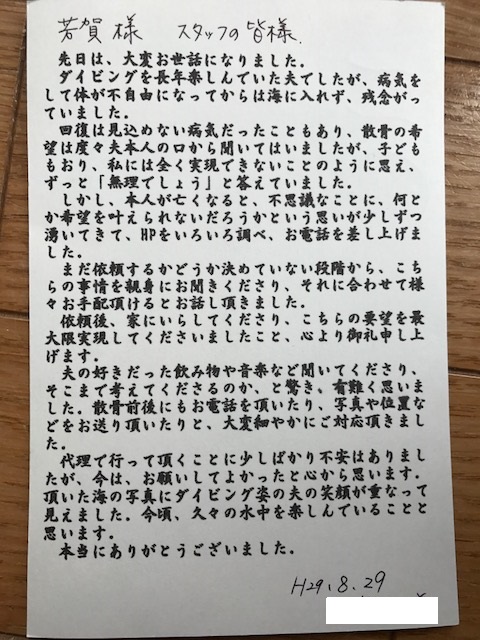 若賀様　スタッフの皆様
先日は、大変お世話になりました。
ダイビングを長年楽しんでいた夫でしたが、病気を
して体が不自由になってからは海に入れず、残念がっ
ていました。
回復は見込めない病気だったこともあり、散骨の希
望は度々夫本人の口から聞いてはいましたが、子ども
もおり、私には全く実現できないことのように思え、
ずっと「無理でしょう」と答えていました。
しかし、本人が亡くなると、不思議なことに、何と
か希望を叶えられないだろうかという思いが少しずつ
湧いてきて、HPをいろいろ調べ、お電話を差し上げま
した。
まだ依頼するかどうか決めていない段階から、こち
らの事情を親身にお聞きくださり、それに合わせて様
々お手配頂けるとお話し頂きました。
依頼後、家にいらしてくださり、こちらの要望を最
大限実現してくださいましたこと、心より御礼申し上
げます。
夫の好きだった飲み物や音楽など聞いてくださり、
そこまで考えてくださるのか、と驚き、有難く思いま
した。散骨前後にもお電話を頂いたり、写真や位置な
どをお送り頂いたりと、大変細やかにご対応頂きまし
た。
代理で行って頂くことに少しばかり不安はありまし
たが、今は、お願いしてよかったと心から思います。
頂いた海の写真にダイビング姿の夫の笑顔が重なって
見えました。今頃、久々の水中を楽しんでいることと
思います。
本当にありがとうございました。
H29.8.29